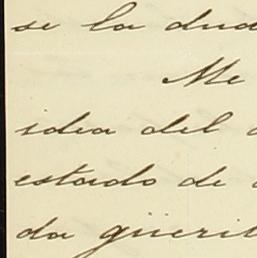 se la dud
Me
idea del
estado de
da güerit